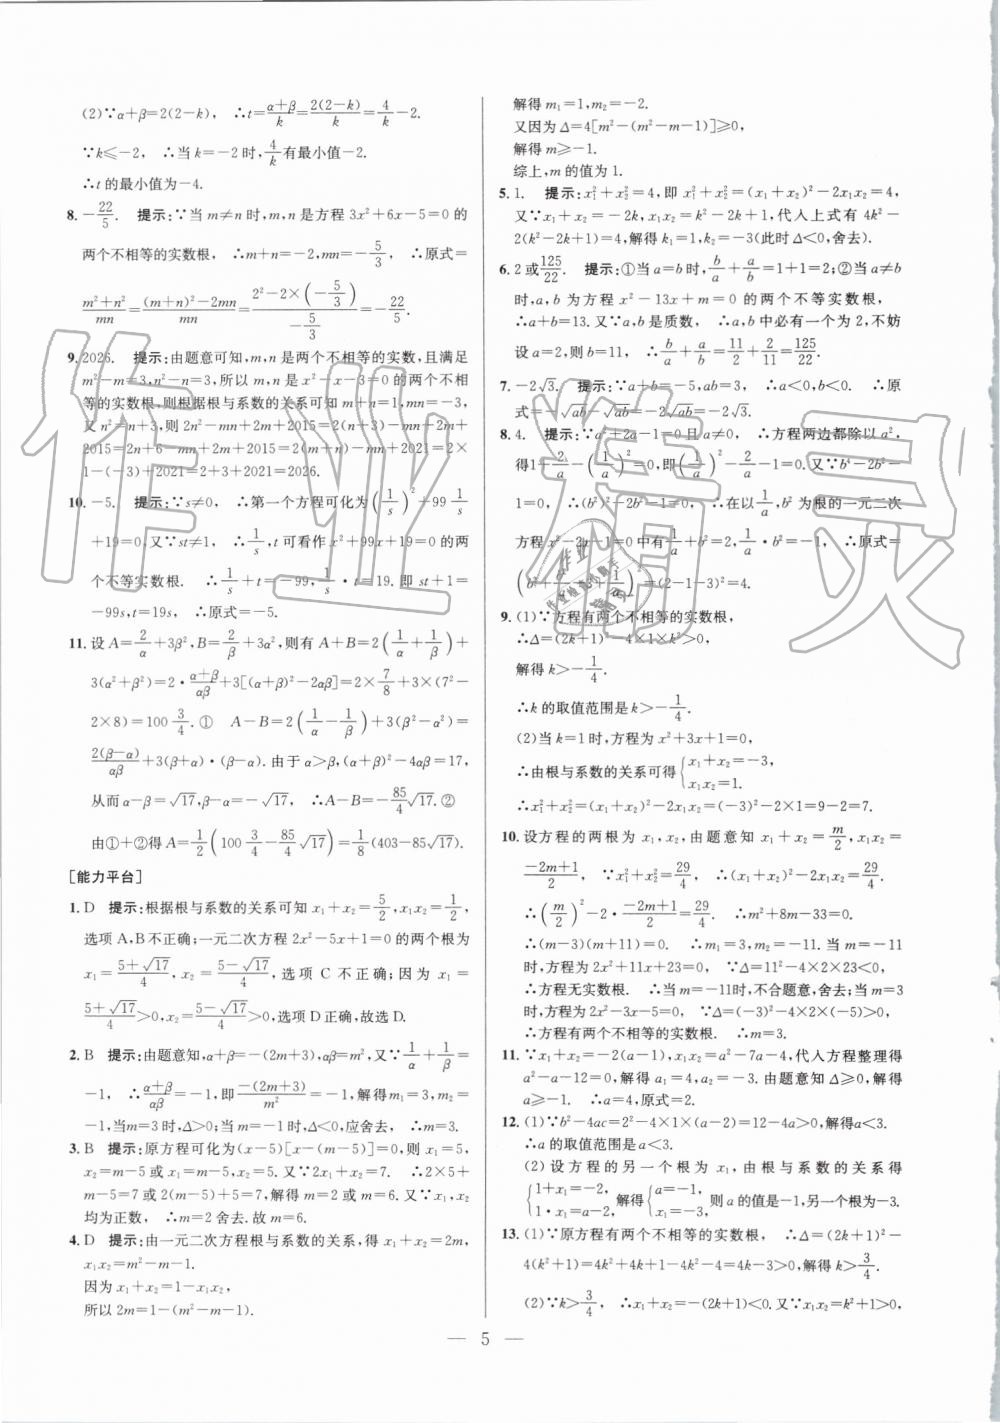 (2)∵α+β=2(2-k), ∴t=(α+β)/k=2(2-k)/k=4/k-2.
∵k≤-2, ∴当 k=-2 时, 4/k 有最小值-2.
∴t 的最小值为-4.
8. -22/5. 提示:∵当 m≠n 时,m,n 是方程 3x²+6x-5=0 的
两个不相等的实数根, ∴m+n=-2,mn=-5/3, ∴原式=
(m²+n²)/mn=((m+n)²-2mn)/mn=(2²-2×(-5/3))/(-5/3)=-22/5.
9. 2026. 提示:由题意可知,m,n 是两个不相等的实数,且满足
m²-m=3,n²-n=3,所以 m,n 是 x²-x-3=0 的两个不相
等的实数根,则根据根与系数的关系可知 m+n=1,mn=-3,
又 n²=n+3,则 2n²-mn+2m+2015=2(n+3)-mn+2m+
2015=2n+6-mn+2m+2015=2(m+n)-mn+2021=2×
1-(-3)+2021=2+3+2021=2026.
10. -5. 提示:∵s≠0, ∴第一个方程可化为(1/s)²+99·1/s
+19=0. 又∵st≠1, ∴1/s,t 可看作 x²+99x+19=0 的两
个不等实数根. ∴1/s+t=-99, 1/s·t=19. 即 st+1=
-99s,t=19s, ∴原式=-5.
11. 设 A=2/α+3β²,B=2/β+3α²,则有 A+B=2(1/α+1/β)+
3(α²+β²)=2·(α+β)/αβ+3[(α+β)²-2αβ]=2×7/8+3×(7²-
2×8)=100 3/4.① A-B=2(1/α-1/β)+3(β²-α²)=
2(β-α)/αβ+3(β+α)·(β-α). 由于 α>β,(α+β)²-4αβ=17,
从而 α-β=√17,β-α=-√17, ∴A-B=-85/4√17.②
由①+②得 A=1/2(100 3/4-85/4√17)=1/8(403-85√17).
[能力平台]
1. D 提示:根据根与系数的关系可知 x₁+x₂=5/2,x₁x₂=1/2,
选项 A,B 不正确;一元二次方程 2x²-5x+1=0 的两个根为
x₁=(5+√17)/4,x₂=(5-√17)/4,选项 C 不正确;因为 x₁=
(5+√17)/4>0,x₂=(5-√17)/4>0,选项 D 正确,故选 D.
2. B 提示:由题意知,α+β=-(2m+3),αβ=m²,又∵1/α+1/β=
-1, ∴(α+β)/αβ=-1,即-(2m+3)/m²=-1,解得 m₁=3,m₂=
-1,当 m=3 时,Δ>0;当 m=-1 时,Δ<0,应舍去, ∴m=3.
3. B 提示:原方程可化为(x-5)[x-(m-5)]=0,则 x₁=5,
x₂=m-5 或 x₁=m-5,x₂=5. 又∵2x₁+x₂=7. ∴2×5+
m-5=7 或 2(m-5)+5=7,解得 m=2 或 m=6. 又∵x₁,x₂
均为正数, ∴m=2 舍去. 故 m=6.
4. D 提示:由一元二次方程根与系数的关系,得 x₁+x₂=2m,
x₁x₂=m²-m-1.
因为 x₁+x₂=1-x₁x₂,
所以 2m=1-(m²-m-1).
解得 m₁=1,m₂=-2.
又因为 Δ=4[m²-(m²-m-1)]≥0,
解得 m≥-1.
综上,m 的值为 1.
5. 1. 提示:x₁²+x₂²=4,即 x₁²+x₂²=(x₁+x₂)²-2x₁x₂=4,
又∵x₁+x₂=-2k,x₁x₂=k²-2k+1,代入上式有 4k²-
2(k²-2k+1)=4,解得 k₁=1,k₂=-3(此时 Δ<0,舍去).
6. 2 或 125/22. 提示:①当 a=b 时,b/a+a/b=1+1=2;②当 a≠b
时,a,b 为方程 x²-13x+m=0 的两个不等实数根,
∴a+b=13. 又∵a,b 是质数, ∴a,b 中必有一个为 2,不妨
设 a=2,则 b=11, ∴b/a+a/b=11/2+2/11=125/22.
7. -2√3. 提示:∵a+b=-5,ab=3, ∴a<0,b<0, ∴原
式=-√ab-√ab=-2√ab=-2√3.
8. 4. 提示:∵a²+2a-1=0 且 a≠0, ∴方程两边都除以 a²,
得 1+2/a-(1/a)²=0,即(1/a)²-2/a-1=0. 又∵b⁴-2b²-
1=0, ∴(b²)²-2b²-1=0, ∴在以 1/a,b² 为根的一元二次
方程 x²-2x-1=0 中有 1/a+b²=2, 1/a·b²=-1, ∴原式=
(b²+b²/a+1/a)²=(2-1-3)²=4.
9. (1)∵方程有两个不相等的实数根,
∴Δ=(2k+1)²-4×1×k²>0,
解得 k>-1/4.
∴k 的取值范围是 k>-1/4.
(2)当 k=1 时,方程为 x²+3x+1=0,
∴由根与系数的关系可得{x₁+x₂=-3, x₁x₂=1.
∴x₁²+x₂²=(x₁+x₂)²-2x₁x₂=(-3)²-2×1=9-2=7.
10. 设方程的两根为 x₁,x₂,由题意知 x₁+x₂=m/2,x₁x₂=
(-2m+1)/2, ∵x₁²+x₂²=29/4, ∴(x₁+x₂)²-2x₁x₂=29/4,
∴(m/2)²-2·(-2m+1)/2=29/4. ∴m²+8m-33=0.
∴(m-3)(m+11)=0. ∴m₁=3,m₂=-11. 当 m=-11
时,方程为 2x²+11x+23=0, ∵Δ=11²-4×2×23<0,
∴方程无实数根. ∴当 m=-11时,不合题意,舍去;当 m=3
时,方程为 2x²-3x-5=0, ∵Δ=(-3)²-4×2×(-5)>0,
∴方程有两个不相等的实数根. ∴m=3.
11. ∵x₁+x₂=-2(a-1),x₁x₂=a²-7a-4,代入方程整理得
a²-a-12=0,解得 a₁=4,a₂=-3. 由题意知 Δ≥0,解得
a≥-1. ∴a=4,原式=2.
12. (1)∵b²-4ac=2²-4×1×(a-2)=12-4a>0,解得 a<3.
∴a 的取值范围是 a<3.
(2)设方程的另一个根为 x₁,由根与系数的关系得
{1+x₁=-2, 1·x₁=a-2, 解得{a=-1, x₁=-3. 则 a 的值是-1,另一个根为-3.
13. (1)∵原方程有两个不相等的实数根, ∴Δ=(2k+1)²-
4(k²+1)=4k²+4k+1-4k²-4=4k-3>0,解得 k>3/4.
(2)∵k>3/4, ∴x₁+x₂=-(2k+1)<0. 又∵x₁x₂=k²+1>0,
— 5 —
作业精灵